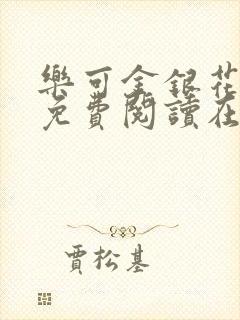 樂可金銀花
免費閱讀在
賈松基